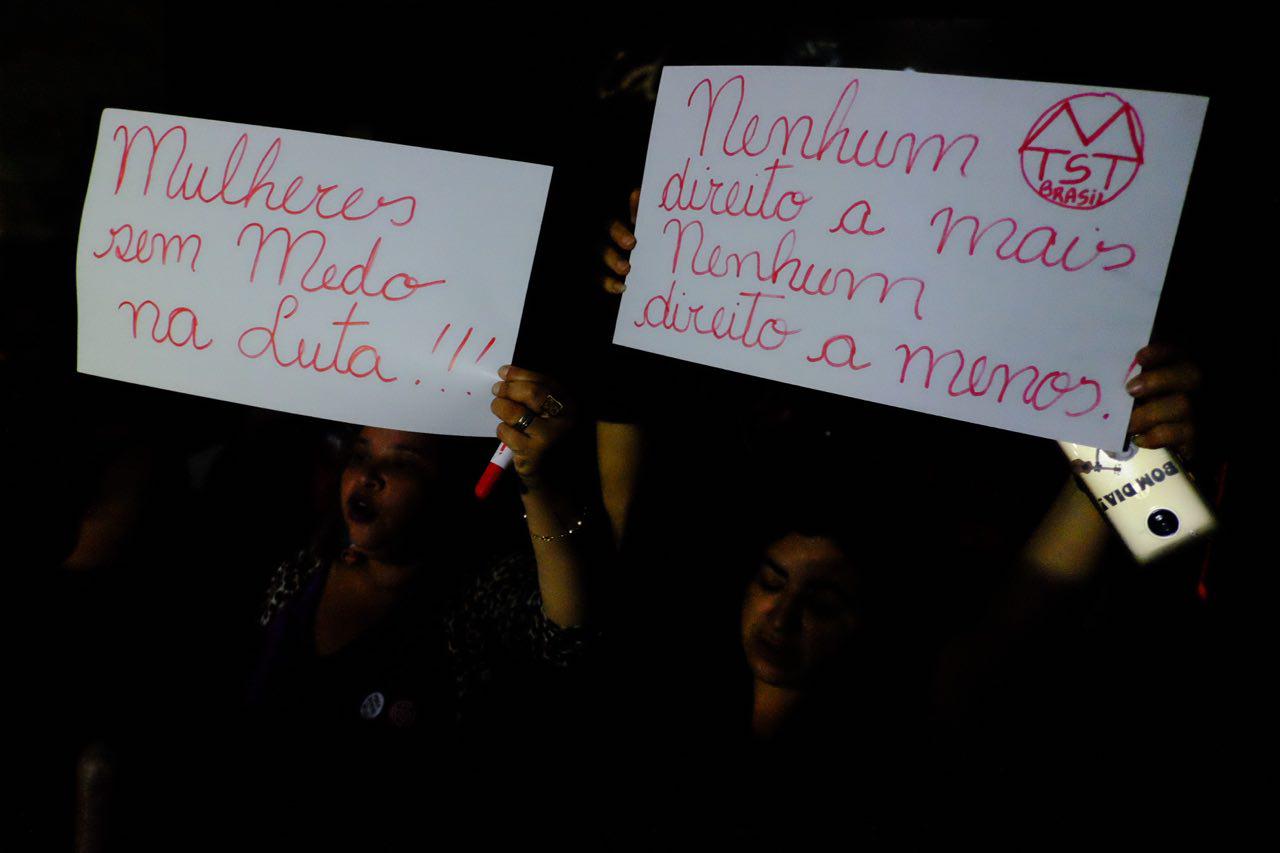 Mulheres
sem Medo
na Luta!!!
Nenhum
direito a mais
Nenhum
direito a menos!
M
TST
BRASIL
BOM DIA!